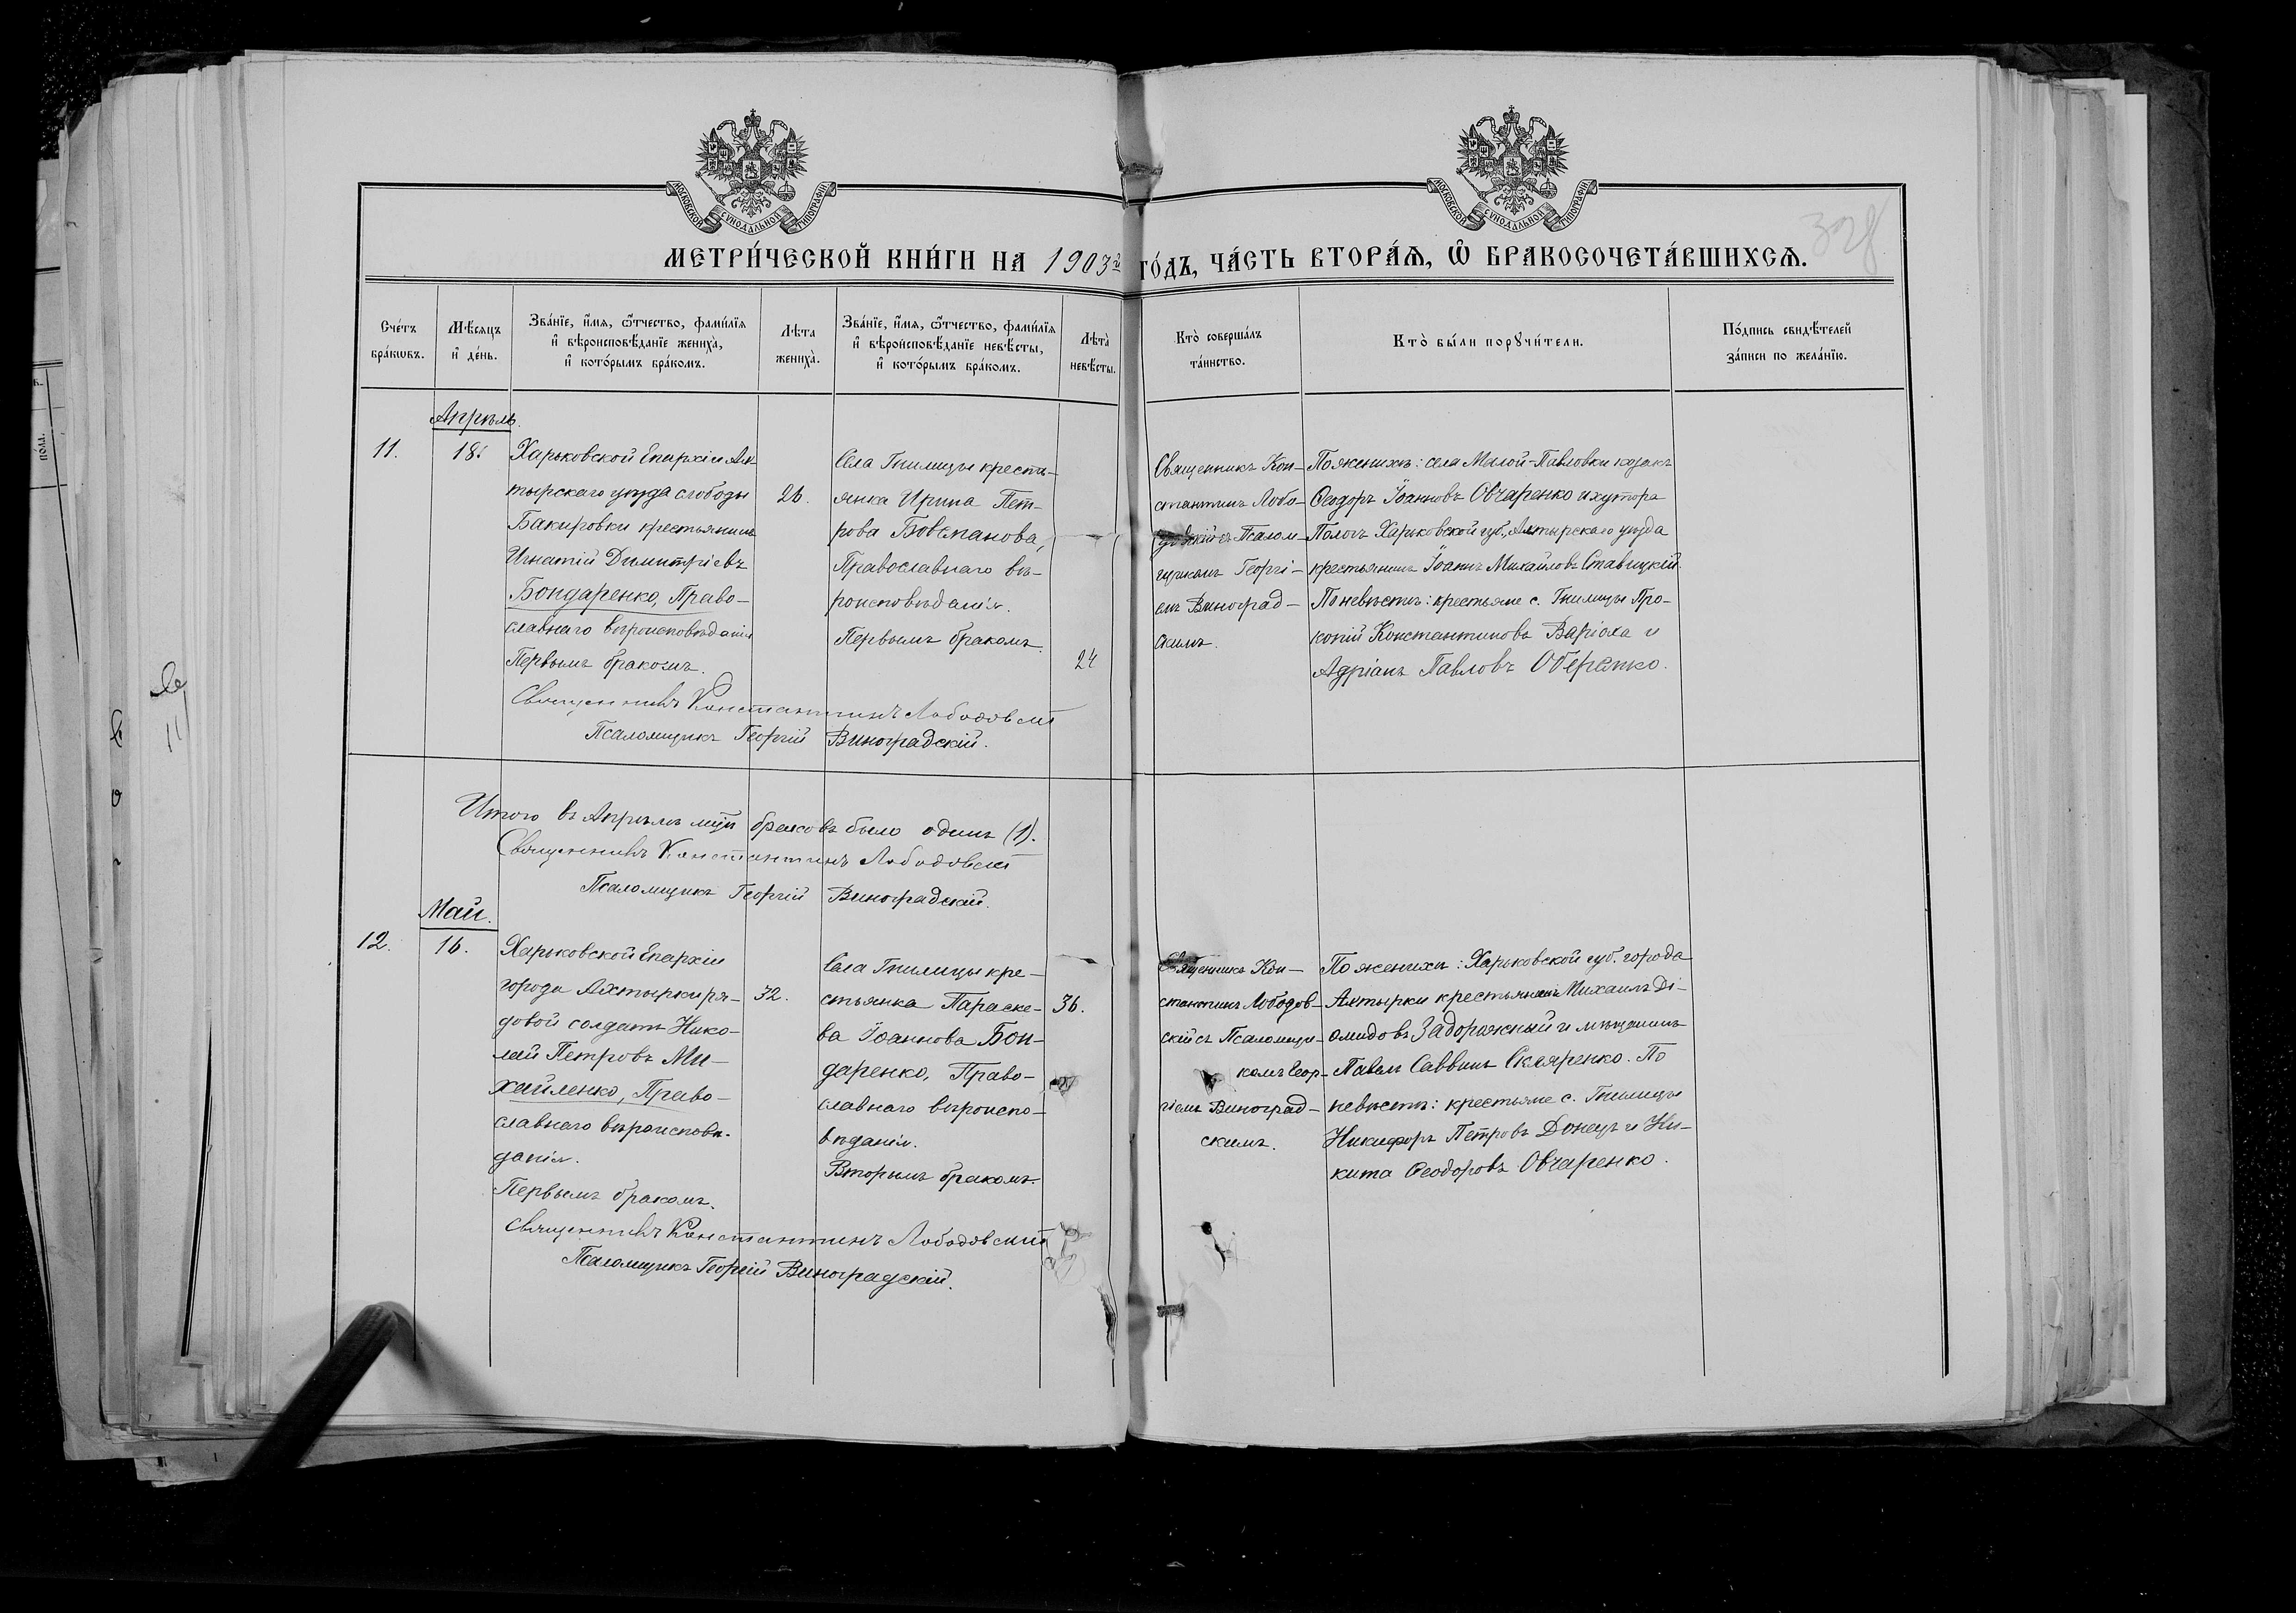 МОСКОВСКОЙ СУНОДАЛЬНОЙ ТИПОГРАФІИ
МОСКОВСКОЙ СУНОДАЛЬНОЙ ТИПОГРАФІИ
МЕТРИ́ЧЕСКОЙ КНИ́ГИ НА 1903й ГО́ДЪ, ЧА́СТЬ ВТОРА́Ѧ, Ѽ БРАКОСОЧЕТА́ВШИХСѦ.
Сче́тъ
бра́кѡвъ.
Мѣ́сѧцъ
и҆ де́нь.
Зва́нїе, и҆́мѧ, ѻ҆́тчество, фами́лїѧ
и҆ вѣроисповѣ́данїе жениха̀,
и҆ кото́рымъ бра́комъ.
Лѣта
жениха̀.
Зва́нїе, и҆́мѧ, ѻ҆́тчество, фами́лїѧ
и҆ вѣроисповѣ́данїе невѣ́сты,
и҆ кото́рымъ бра́комъ.
Лѣта̀
невѣ́сты.
Кто̀ соверша́лъ
та́инство.
Кто̀ бы́ли порꙋчи́тели.
По́дпись свидѣ́телей
за́писи по жела́нїю.
Апрѣль.
11.
18.
Харьковской Епархіи Ах-
тырскаго уѣзда слободы
Бакировки крестьянинъ
Игнатій Димитріевъ
Бондаренко, Право-
славнаго вѣроисповѣданія
Первымъ бракомъ.
26.
Села Гнилицы кресть-
янка Ирина Пет-
рова
Православнаго вѣ-
роисповѣданія.
Первымъ бракомъ.
24
Священникъ Кон-
стантинъ Лобо-
довскій съ Псалом-
щикомъ Георгі-
емъ Виноград-
скимъ.
По женихѣ: села Малой-Павловки козакъ
Ѳеодоръ Іоанновъ Овчаренко и хутора
Пологъ Харьковской губ., Ахтырскаго уѣзда
крестьянинъ Іоаннъ Михайловъ Ставицкій.
По невѣстѣ: крестьяне с. Гнилицы Про-
копій Константиновъ Варіоха и
Адріанъ Павловъ
Священникъ Константинъ Лободовскій
Псаломщикъ Георгій Виноградскій.
Итого въ Апрѣлѣ мцѣ браковъ было одинъ (1).
Священникъ Константинъ Лободовскій
Псаломщикъ Георгій Виноградскій.
Май.
12.
16.
Харьковской Епархіи
города Ахтырки ря-
довой солдатъ Нико-
лай Петровъ Ми-
хайленко, Право-
славнаго вѣроисповѣ-
данія.
Первымъ бракомъ.
32.
Села Гнилицы кре-
стьянка Параске-
ва Іоаннова Бон-
даренко, Право-
славнаго вѣроиспо-
вѣданія.
Вторымъ бракомъ.
36.
Священникъ Кон-
стантинъ Лободов-
скій съ Псаломщи-
комъ Геор-
гіемъ Виноград-
скимъ.
По женихѣ: Харьковской губ. города
Ахтырки крестьянинъ Михаилъ Ді-
омидовъ Задорожный и мѣщанинъ
Павелъ Саввинъ Скляренко. По
невѣстѣ: крестьяне с. Гнилицы
Никифоръ Петровъ Донецъ и Ни-
кита Ѳеодоровъ Овчаренко.
Священникъ Константинъ Лободовскій
Псаломщикъ Георгій Виноградскій.